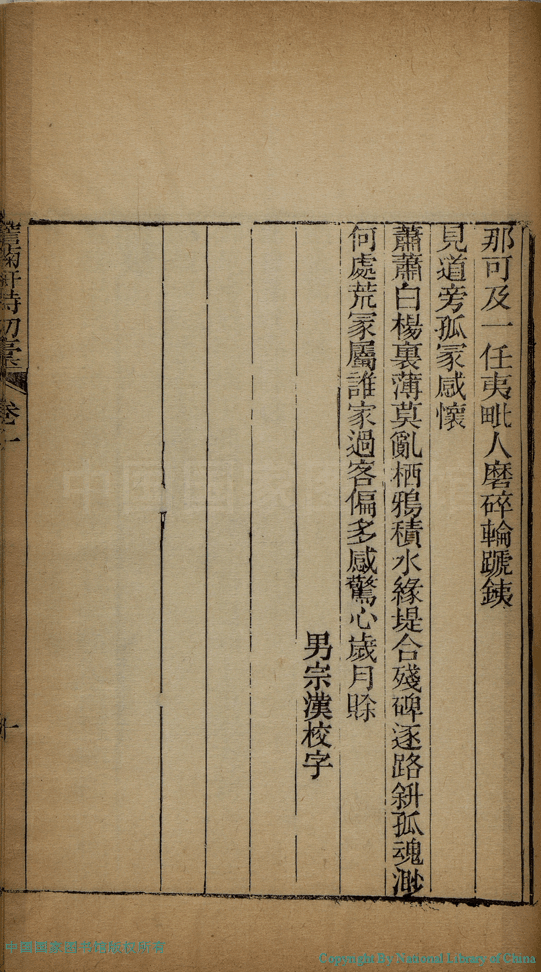 那可及一任夷毗人磨碎輪蹏鉄
見道旁孤冢感懷
蕭蕭白楊裏薄莫亂栖鴉積水緣堤合殘碑逐路斜孤魂渺
何處荒冢屬誰家過客偏多感驚心歲月賒
男宗漢校字
詩初稾
卷一
十
中国国家图书馆
中国国家图书馆版权所有
Copyright By National Library of China